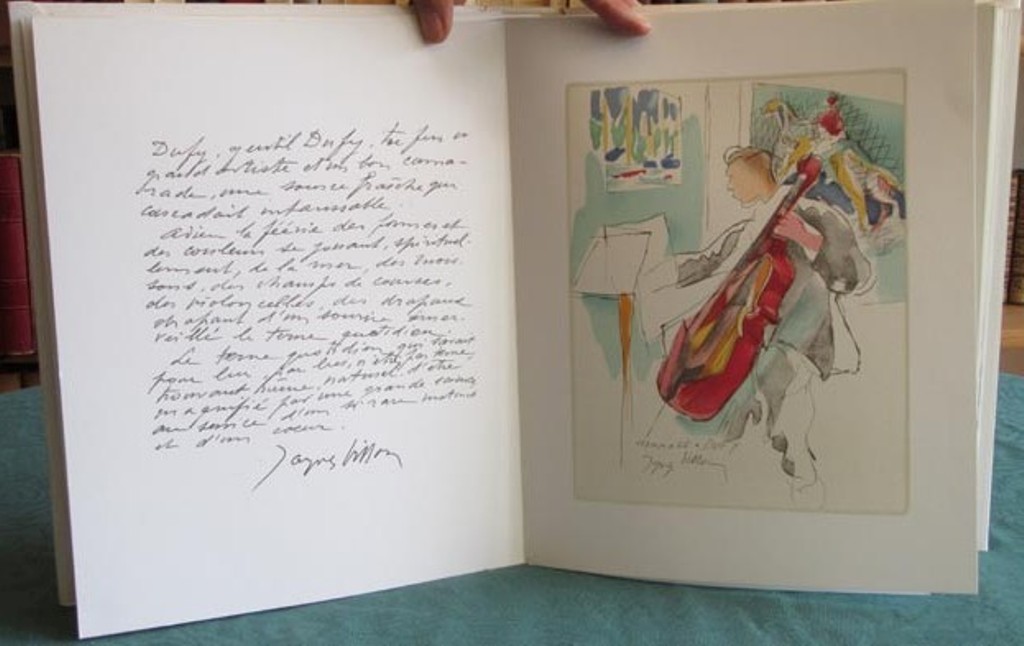 Dufy, gentil Dufy, tu fus un
grand artiste et un bon cama-
rade, une source fraîche qui
cascadait
adieu la féérie des formes et
des couleurs se jouant, spirituel-
lement, de la mer, des mois-
sons, des champs de courses,
des violoncelles, des drapeaux
drapant d'un sourire émer-
veillé le terne quotidien.
Le terne quotidien qui vivant
pour lui, par lui, n'était pas terne,
trouvant même, naturel d'être
magnifié par une grande science
au service d'un si rare
et d'un coeur.
Jacques Villon
Hommage à Dufy
Jacques Villon